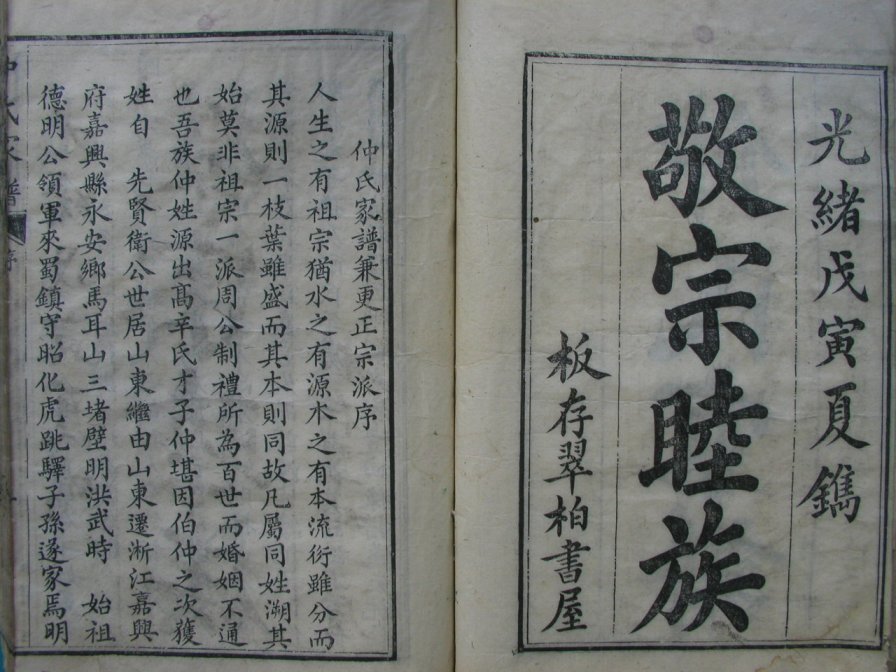 光緒戊寅夏鐫
敬宗睦族
板存翠柏書屋
仲氏家譜兼更正宗派序
人生之有祖宗猶水之有源木之有本流衍雖分而
其源則一枝葉雖盛而其本則同故凡屬同姓溯其
始莫非祖宗一派周公制禮所為百世而婚姻不通
也吾族仲姓源出高辛氏才子仲堪因伯仲之次獲
姓自 先賢衛公世居山東繼由山東遷淅江嘉興
府嘉興縣永安鄉馬耳山三堵壁明洪武時 始祖
德明公領軍來蜀鎮守昭化虎跳驛子孫遂家焉明
氏家譜
序